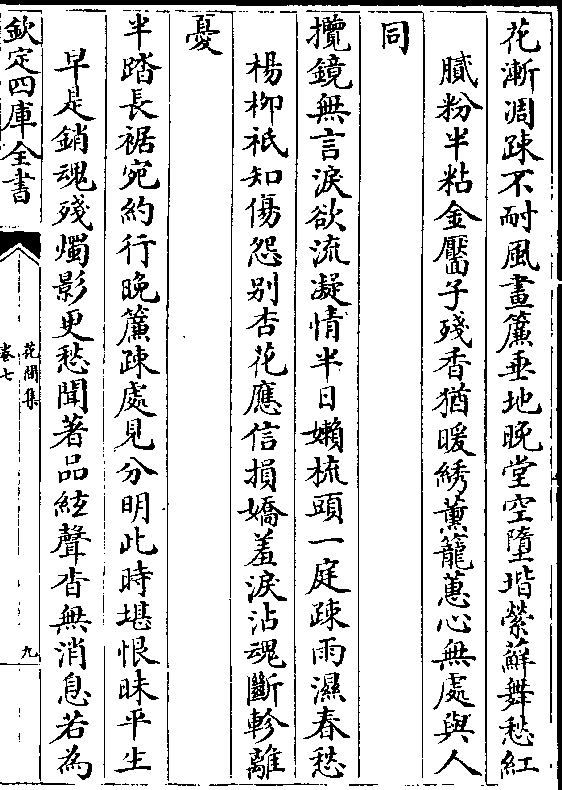 花漸凋踈不耐風畫簾垂地晚堂空墮堦縈蘚舞愁紅
膩粉半粘金靨子殘香猶暖綉薰籠蕙心無處與人
同
攬鏡無言淚欲流凝情半日嬾梳頭一庭踈雨濕春愁
楊柳祇知傷怨别杏花應信損嬌羞淚沾魂斷軫離
憂
半踏長裾宛約行晚簾踈處見分明此時堪恨昧平生
早是銷魂殘燭影更愁聞著品絃聲杳無消息若為
欽定四庫全書
花間集
卷七
九